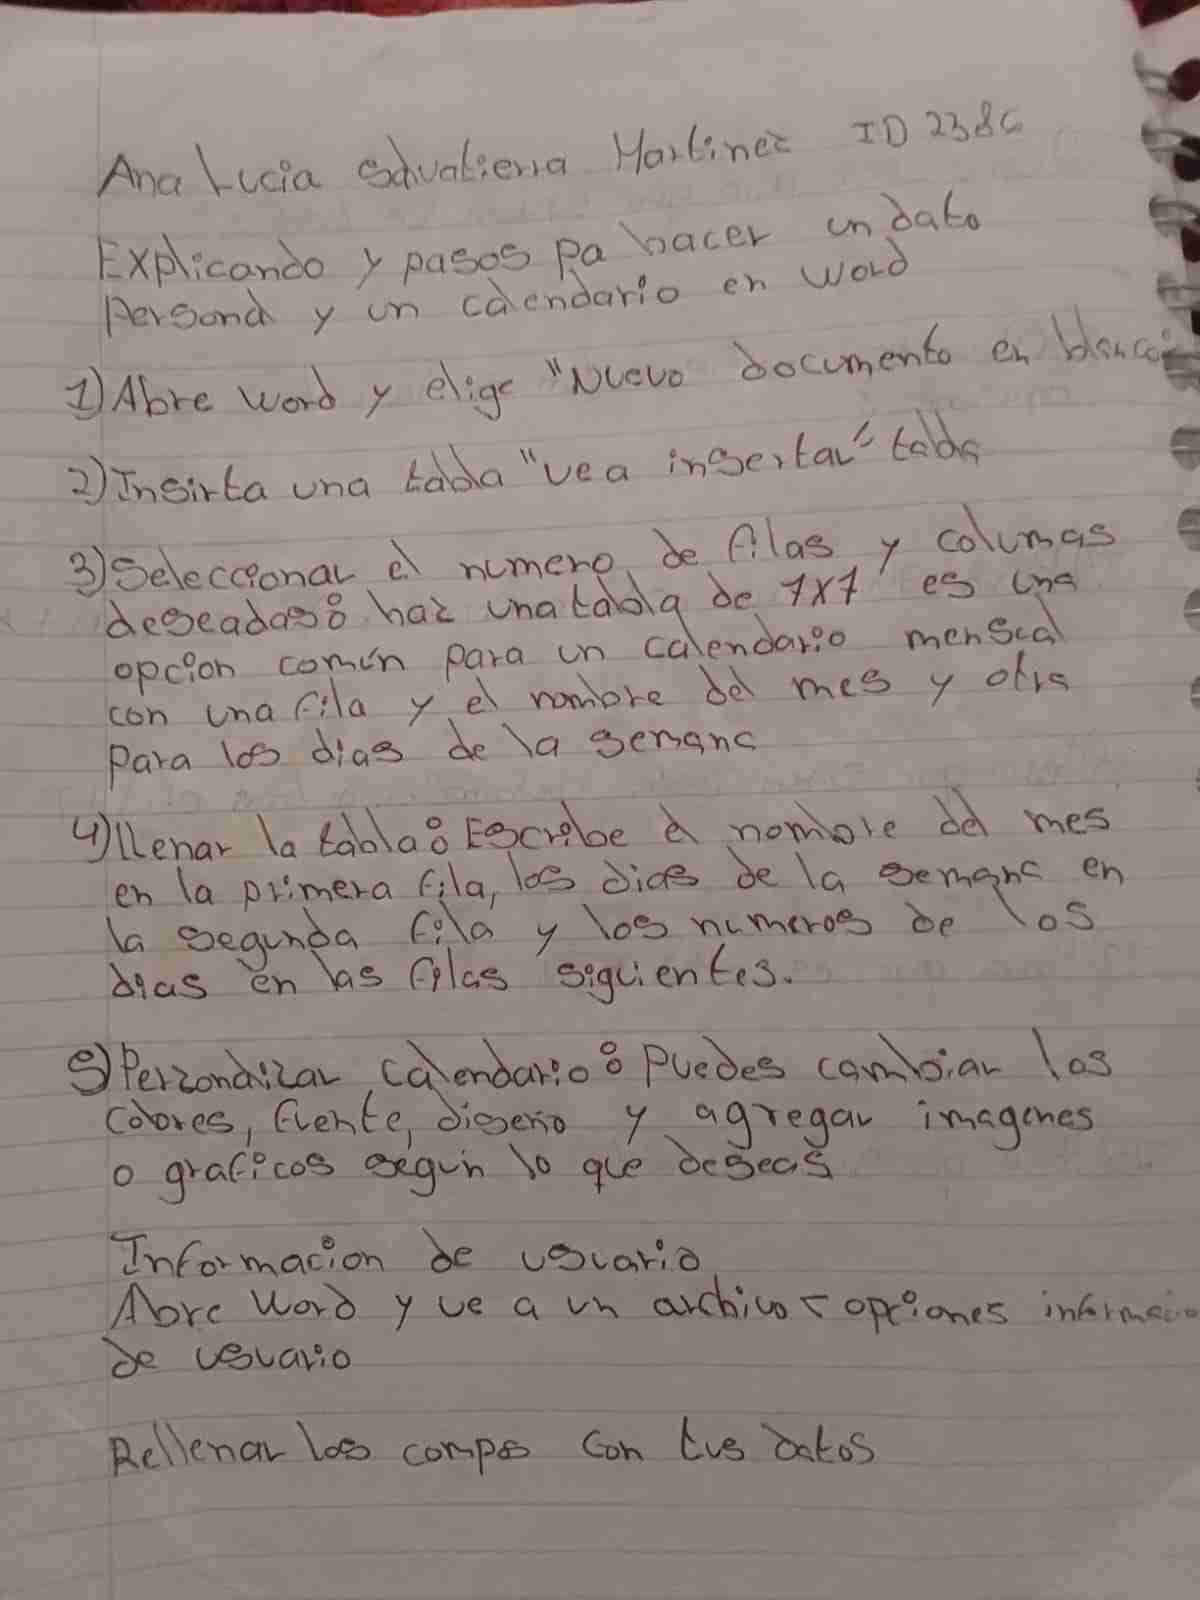 Ana Lucia Salvatierra Martinez ID 238
Explicando y pasos pa hacer un dato
Personal y un calendario en word
1) Abre word y elige "Nuevo documento en blanco"
2) Insirta una tabla "ve a insertar" tabla
3) Seleccionar el numero de filas y columas
deseadas: haz una tabla de 7x7 es una
opcion común para un calendario menscal
con una fila y el nombre del mes y otra
para los dias de la semana
4) llenar la tabla: Escribe el nombre del mes
en la primera fila, los dias de la semana en
la segunda fila y los numeros de los
dias en las filas siguientes.
5) Perzonalizar calendario: Puedes cambiar los
colores, fuente, diseño y agregar imagenes
o graficos según lo que deseas
Informacion de usuario
Abre Word y ve a un archivo < opciones informacio
de usuario
Rellenar los compos con tus datos